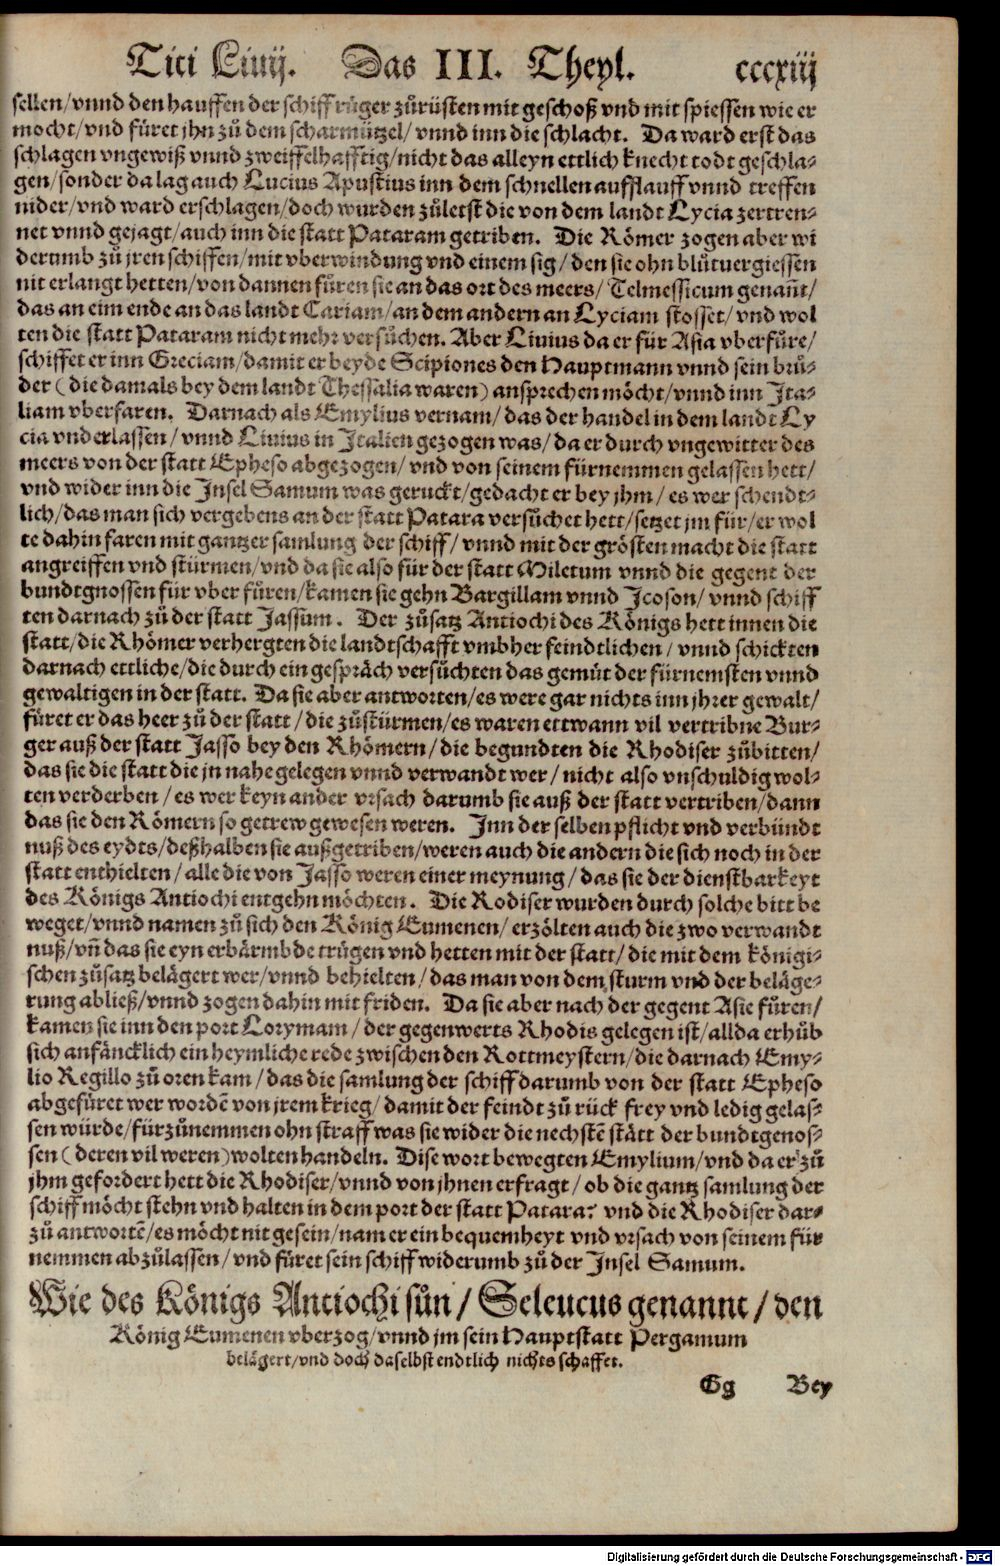 Titi Liuij. Das III. Theyl. cccxiij
sellen/vnnd den hauffen der schiff růger zůrüsten mit geschoß vnd mit spiessen wie er
mocht/vnd füret jhn zů dem scharmützel/vnnd inn die schlacht. Da ward erst das
schlagen vngewiß vnnd zweiffelhafftig/nicht das alleyn ettlich knecht todt geschla-
gen/sonder da lag auch Lucius Apustius inn dem schnellen aufflauff vnnd treffen
nider/vnd ward erschlagen/doch wurden zůletst die von dem landt Lycia zertren-
net vnnd gejagt/auch inn die statt Pataram getriben. Die Römer zogen aber wi
derumb zů jren schiffen/mit vberwindung vnd einem sig/den sie ohn blůtuergiessen
nit erlangt hetten/von dannen fůren sie an das ort des meers/Telmessicum genañt/
das an eim ende an das landt Cariam/an dem andern an Lyciam stosset/vnd wol
ten die statt Pataram nicht mehr versůchen. Aber Liuius da er für Asia vberfüre/
schiffet er inn Greciam/damit er beyde Scipiones den Hauptmann vnnd sein brů-
der (die damals bey dem landt Thessalia waren) ansprechen möcht/vnnd inn Ita-
liam vberfaren. Darnach als Emylius vernam/das der handel in dem landt Ly
cia vnderlassen/vnnd Liuius in Italien gezogen was/da er durch vngewitter des
meers von der statt Epheso abgezogen/vnd von seinem fürnemmen gelassen hett/
vnd wider inn die Insel Samum was geruckt/gedacht er bey jhm/es wer schendt-
lich/das man sich vergebens an der statt Patara versůchet hett/setzet jm für/er wol
te dahin faren mit gantzer samlung der schiff/vnnd mit der grösten macht die statt
angreiffen vnd stürmen/vnd da sie also für der statt Miletum vnnd die gegent der
bundtgnossen für vber fůren/kamen sie gehn Bargillam vnnd Icoson/vnnd schiff
ten darnach zů der statt Jassum. Der zůsatz Antiochi des Königs hett innen die
statt/die Rhömer verhergten die landtschafft vmbher feindtlichen/vnnd schickten
darnach ettliche/die durch ein gespräch versůchten das gemůt der fürnemsten vnnd
gewaltigen in der statt. Da sie aber antworten/es were gar nichts inn jhrer gewalt/
füret er das heer zů der statt/die zůstürmen/es waren ettwann vil vertribne Bur-
ger auß der statt Jasso bey den Rhömern/die begundten die Rhodiser zůbitten/
das sie die statt die jn nahe gelegen vnnd verwandt wer/nicht also vnschuldig wol-
ten verderben/es wer keyn ander vrsach darumb sie auß der statt vertriben/dann
das sie den Römern so getrew gewesen weren. Inn der selben pflicht vnd verbündt
nuß des eydts/deßhalben sie außgetriben/weren auch die andern die sich noch in der
statt enthielten/alle die von Jasso weren einer meynung/das sie der dienstbarkeyt
des Königs Antiochi entgehn möchten. Die Rodiser wurden durch solche bitt be
weget/vnnd namen zů sich den König Eumenen/erzölten auch die zwo verwandt
nuß/vñ das sie eyn erbärmbde trügen vnd hetten mit der statt/die mit dem königi-
schen zůsatz belägert wer/vnnd behielten/das man von dem sturm vnd der beläge-
rung abließ/vnnd zogen dahin mit friden. Da sie aber nach der gegent Asie fůren/
kamen sie inn den port Lorymam/der gegenwerts Rhodis gelegen ist/allda erhůb
sich anfäncklich ein heymliche rede zwischen den Rottmeystern/die darnach Emy-
lio Regillo zů oren kam/das die samlung der schiff darumb von der statt Epheso
abgefüret wer wordẽ von jrem krieg/damit der feindt zů rück frey vnd ledig gelas-
sen würde/fürzůnemmen ohn straff was sie wider die nechstẽ stätt der bundtgenos-
sen (deren vil weren) wolten handeln. Dise wort bewegten Emylium/vnd da er zů
jhm gefordert hett die Rhodiser/vnnd von jhnen erfragt/ob die gantz samlung der
schiff möcht stehn vnd halten in dem port der statt Patara? vnd die Rhodiser dar-
zů antwortẽ/es möcht nit gesein/nam er ein bequemheyt vnd vrsach von seinem für
nemmen abzůlassen/vnd füret sein schiff widerumb zů der Insel Samum.
Wie des Königs Antiochi sůn/Seleucus genannt/den
König Eumenen vberzog/vnnd jm sein Hauptstatt Pergamum
belägert/vnd doch daselbst endtlich nichts schaffet.
Gg Bey
Digitalisierung gefördert durch die Deutsche Forschungsgemeinschaft - DFG